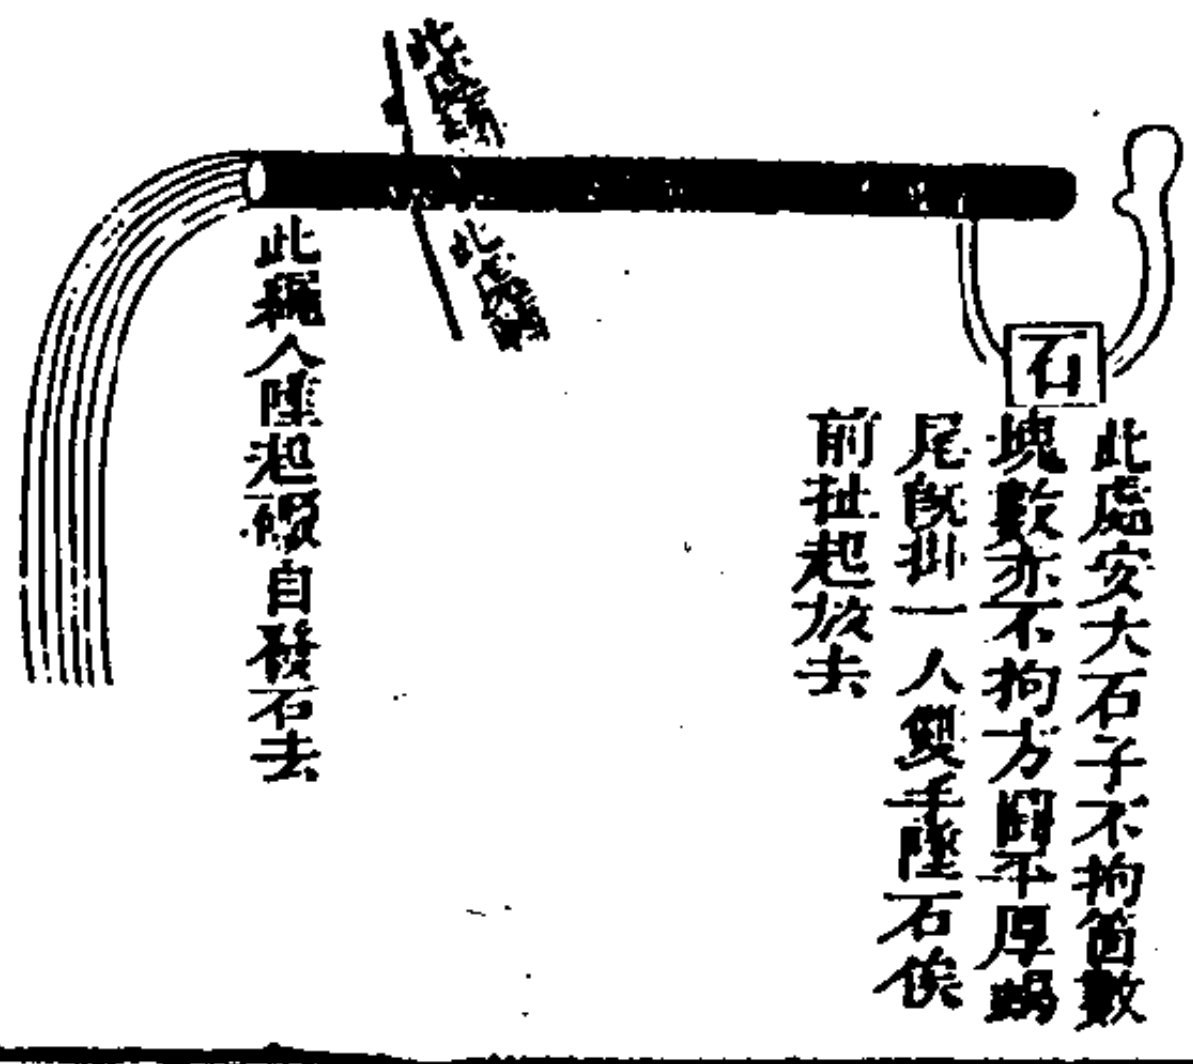 石
此處安大石子不拘箇數
塊數亦不拘方圓平厚蝎
尾旣掛一人雙手墜石俟
前扯起放去
此繩人墜起自發石去